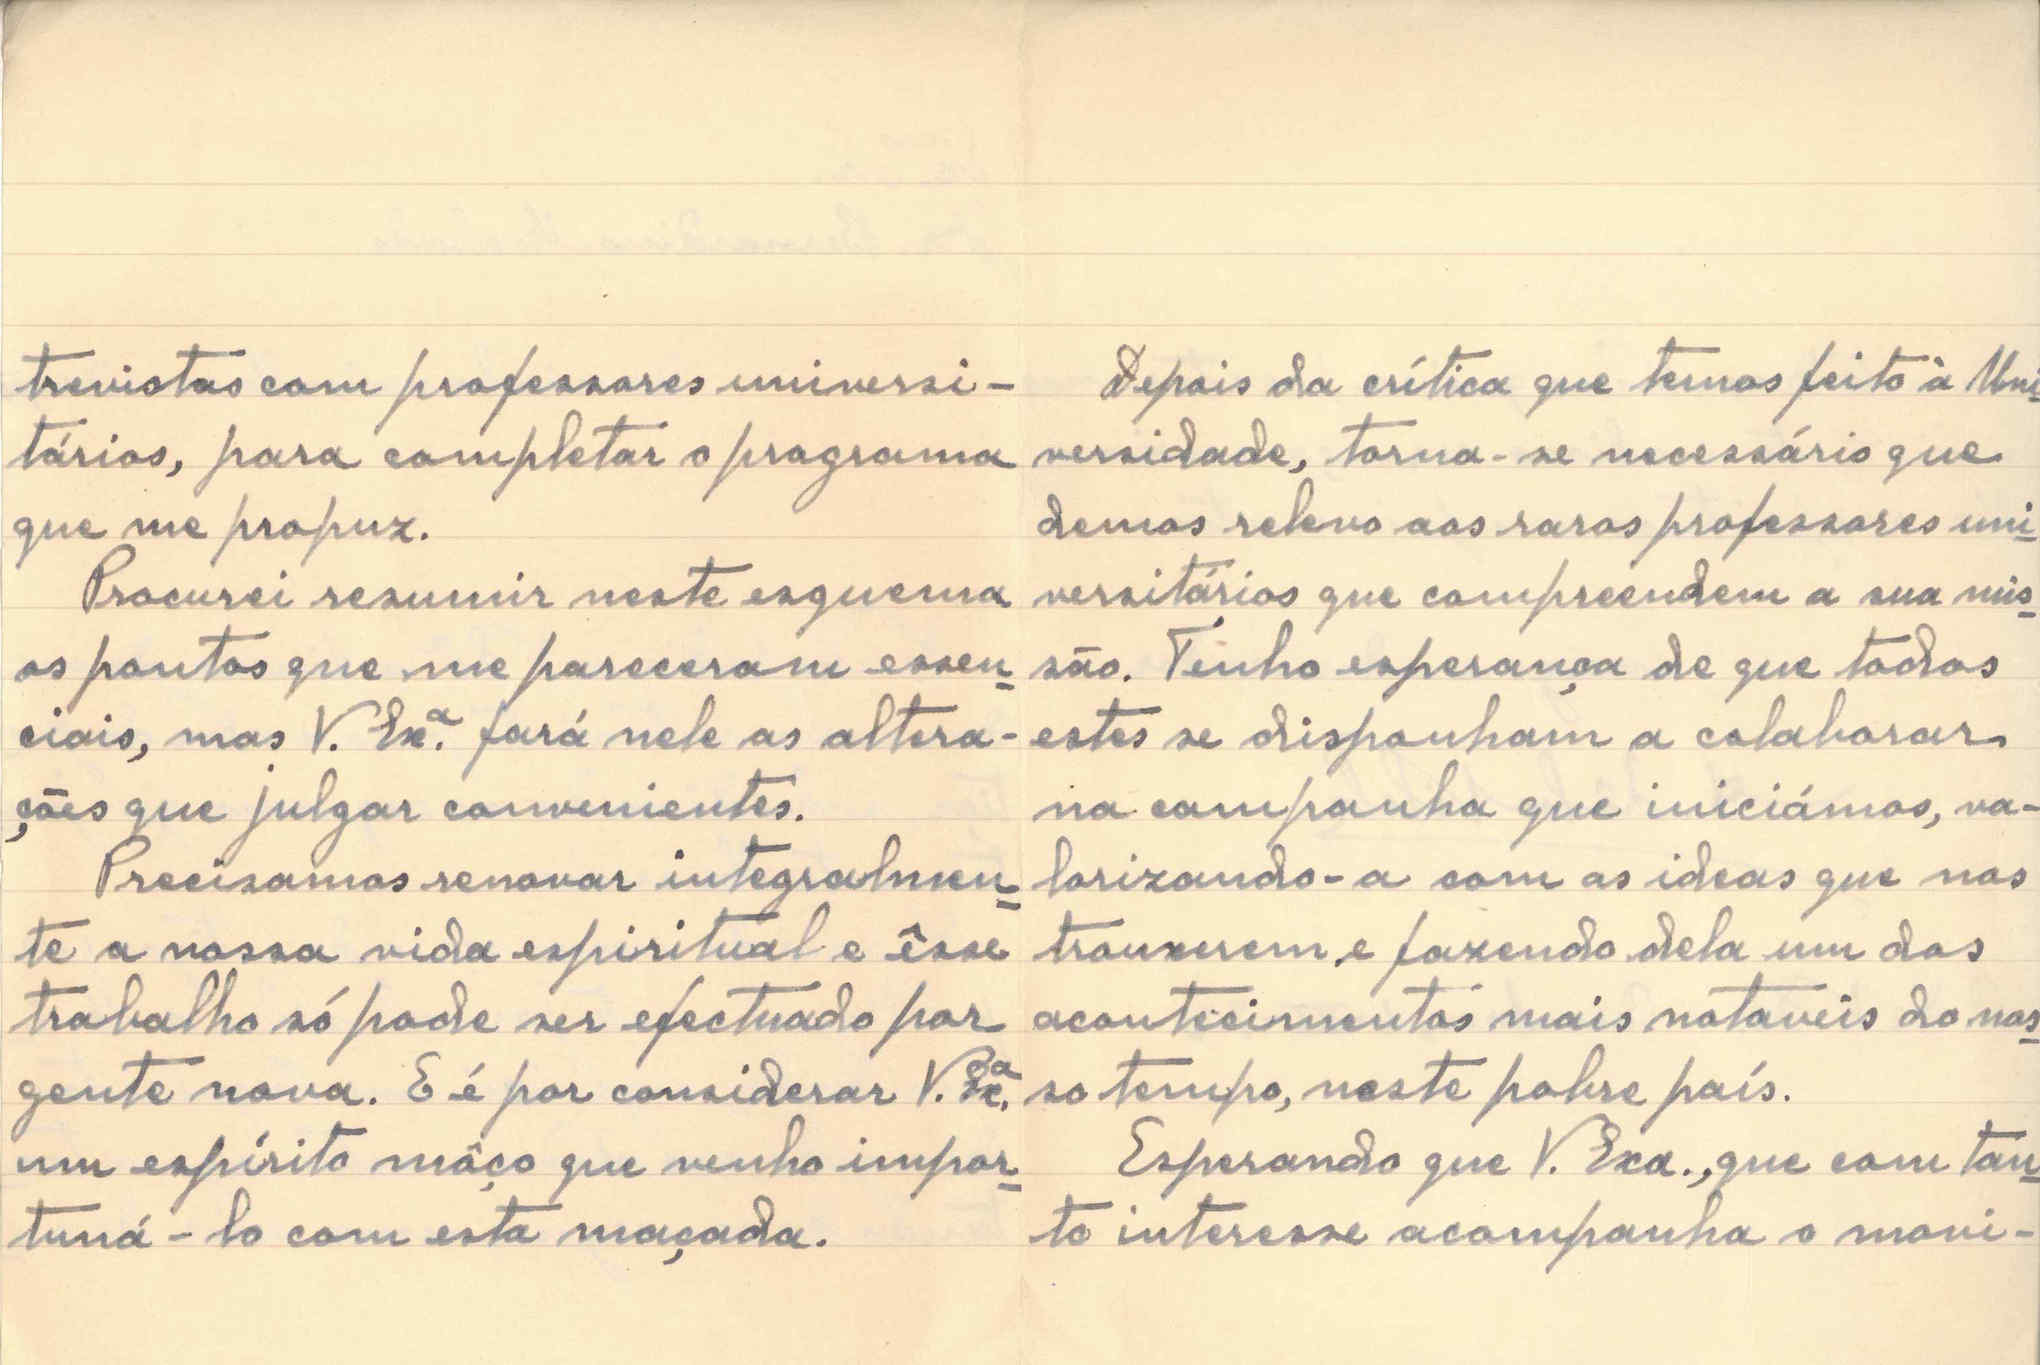 trevistas com professores universi-
tários, para completar o programa
que me propuz.
Procurei resumir neste esquema
os pontos que me pareceram essen-
ciais, mas V. Ex.ª fará nele as altera-
ções que julgar convenientes.
Precisamos renovar integralmen-
te a nossa vida espiritual e êsse
trabalho só pode ser efectuado por
gente nova. E é por considerar V. Ex.ª
um espírito môço que venho impor-
tuná-lo com esta maçada.
Depois da crítica que temos feito à Uni-
versidade, torna-se necessário que
demos relevo aos raros professores uni-
versitários que compreendem a sua mis-
são. Tenho esperança de que todos
estes se disponham a colaborar
na campanha que iniciámos, va-
lorizando-a com as ideas que nos
trouxerem e fazendo dela um dos
acontecimentos mais notaveis do nos-
so tempo, neste pobre país.
Esperando que V. Exa., que com tan-
to interesse acompanha o movi-